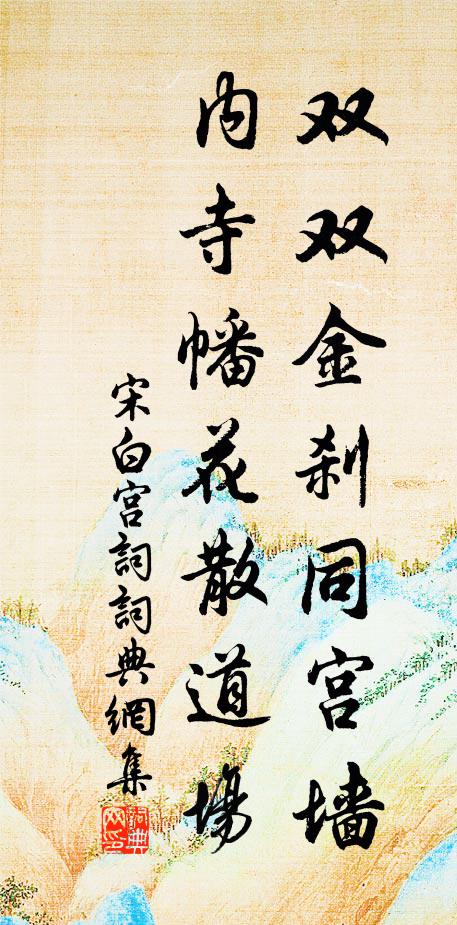 双双金刹同宫墙
内寺幡花散道場
宋白宫詞詞典網集